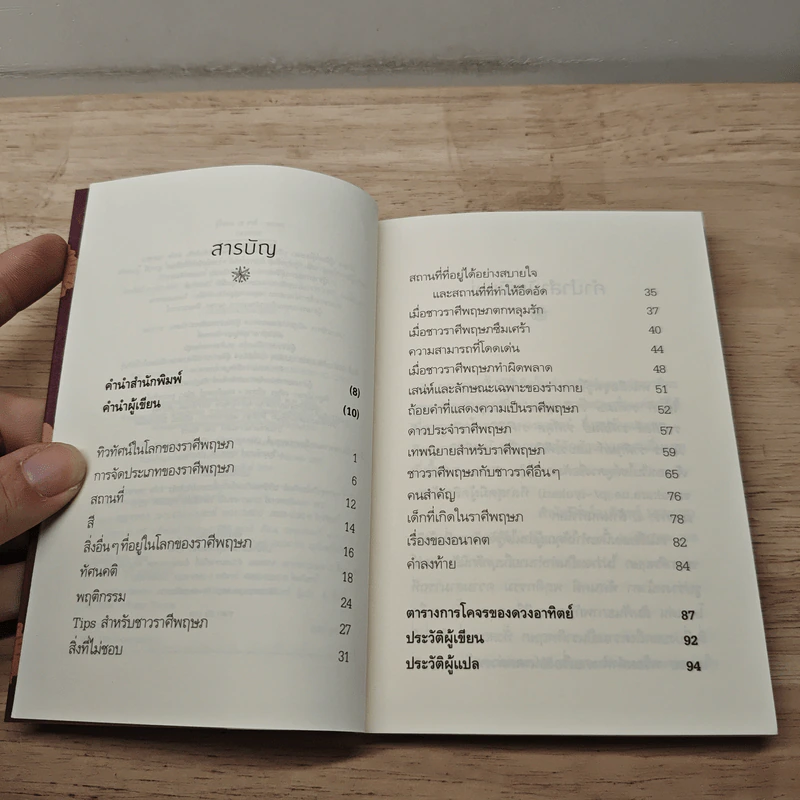 สารบัญ
คำนำสำนักพิมพ์ (8)
คำนำผู้เขียน (10)
ทิวทัศน์ในโลกของราศีพฤษภ 1
การจัดประเภทของราศีพฤษภ 6
สถานที่ 12
สี 14
สิ่งอื่นๆ ที่อยู่ในโลกของราศีพฤษภ 16
ทัศนคติ 18
พฤติกรรม 24
Tips สำหรับชาวราศีพฤษภ 27
สิ่งที่ไม่ชอบ 31
สถานที่ที่อยู่ได้อย่างสบายใจ
และสถานที่ที่ทำให้อึดอัด 35
เมื่อชาวราศีพฤษภตกหลุมรัก 37
เมื่อชาวราศีพฤษภซึมเศร้า 40
ความสามารถที่โดดเด่น 44
เมื่อชาวราศีพฤษภทำผิดพลาด 48
เสน่ห์และลักษณะเฉพาะของร่างกาย 51
ถ้อยคำที่แสดงความเป็นราศีพฤษภ 52
ดาวประจำราศีพฤษภ 57
เทพนิยายสำหรับราศีพฤษภ 59
ชาวราศีพฤษภกับชาวราศีอื่นๆ 65
คนสำคัญ 76
เด็กที่เกิดในราศีพฤษภ 78
เรื่องของอนาคต 82
คำลงท้าย 84
ตารางการโคจรของดวงอาทิตย์ 87
ประวัติผู้เขียน 92
ประวัติผู้แปล 94